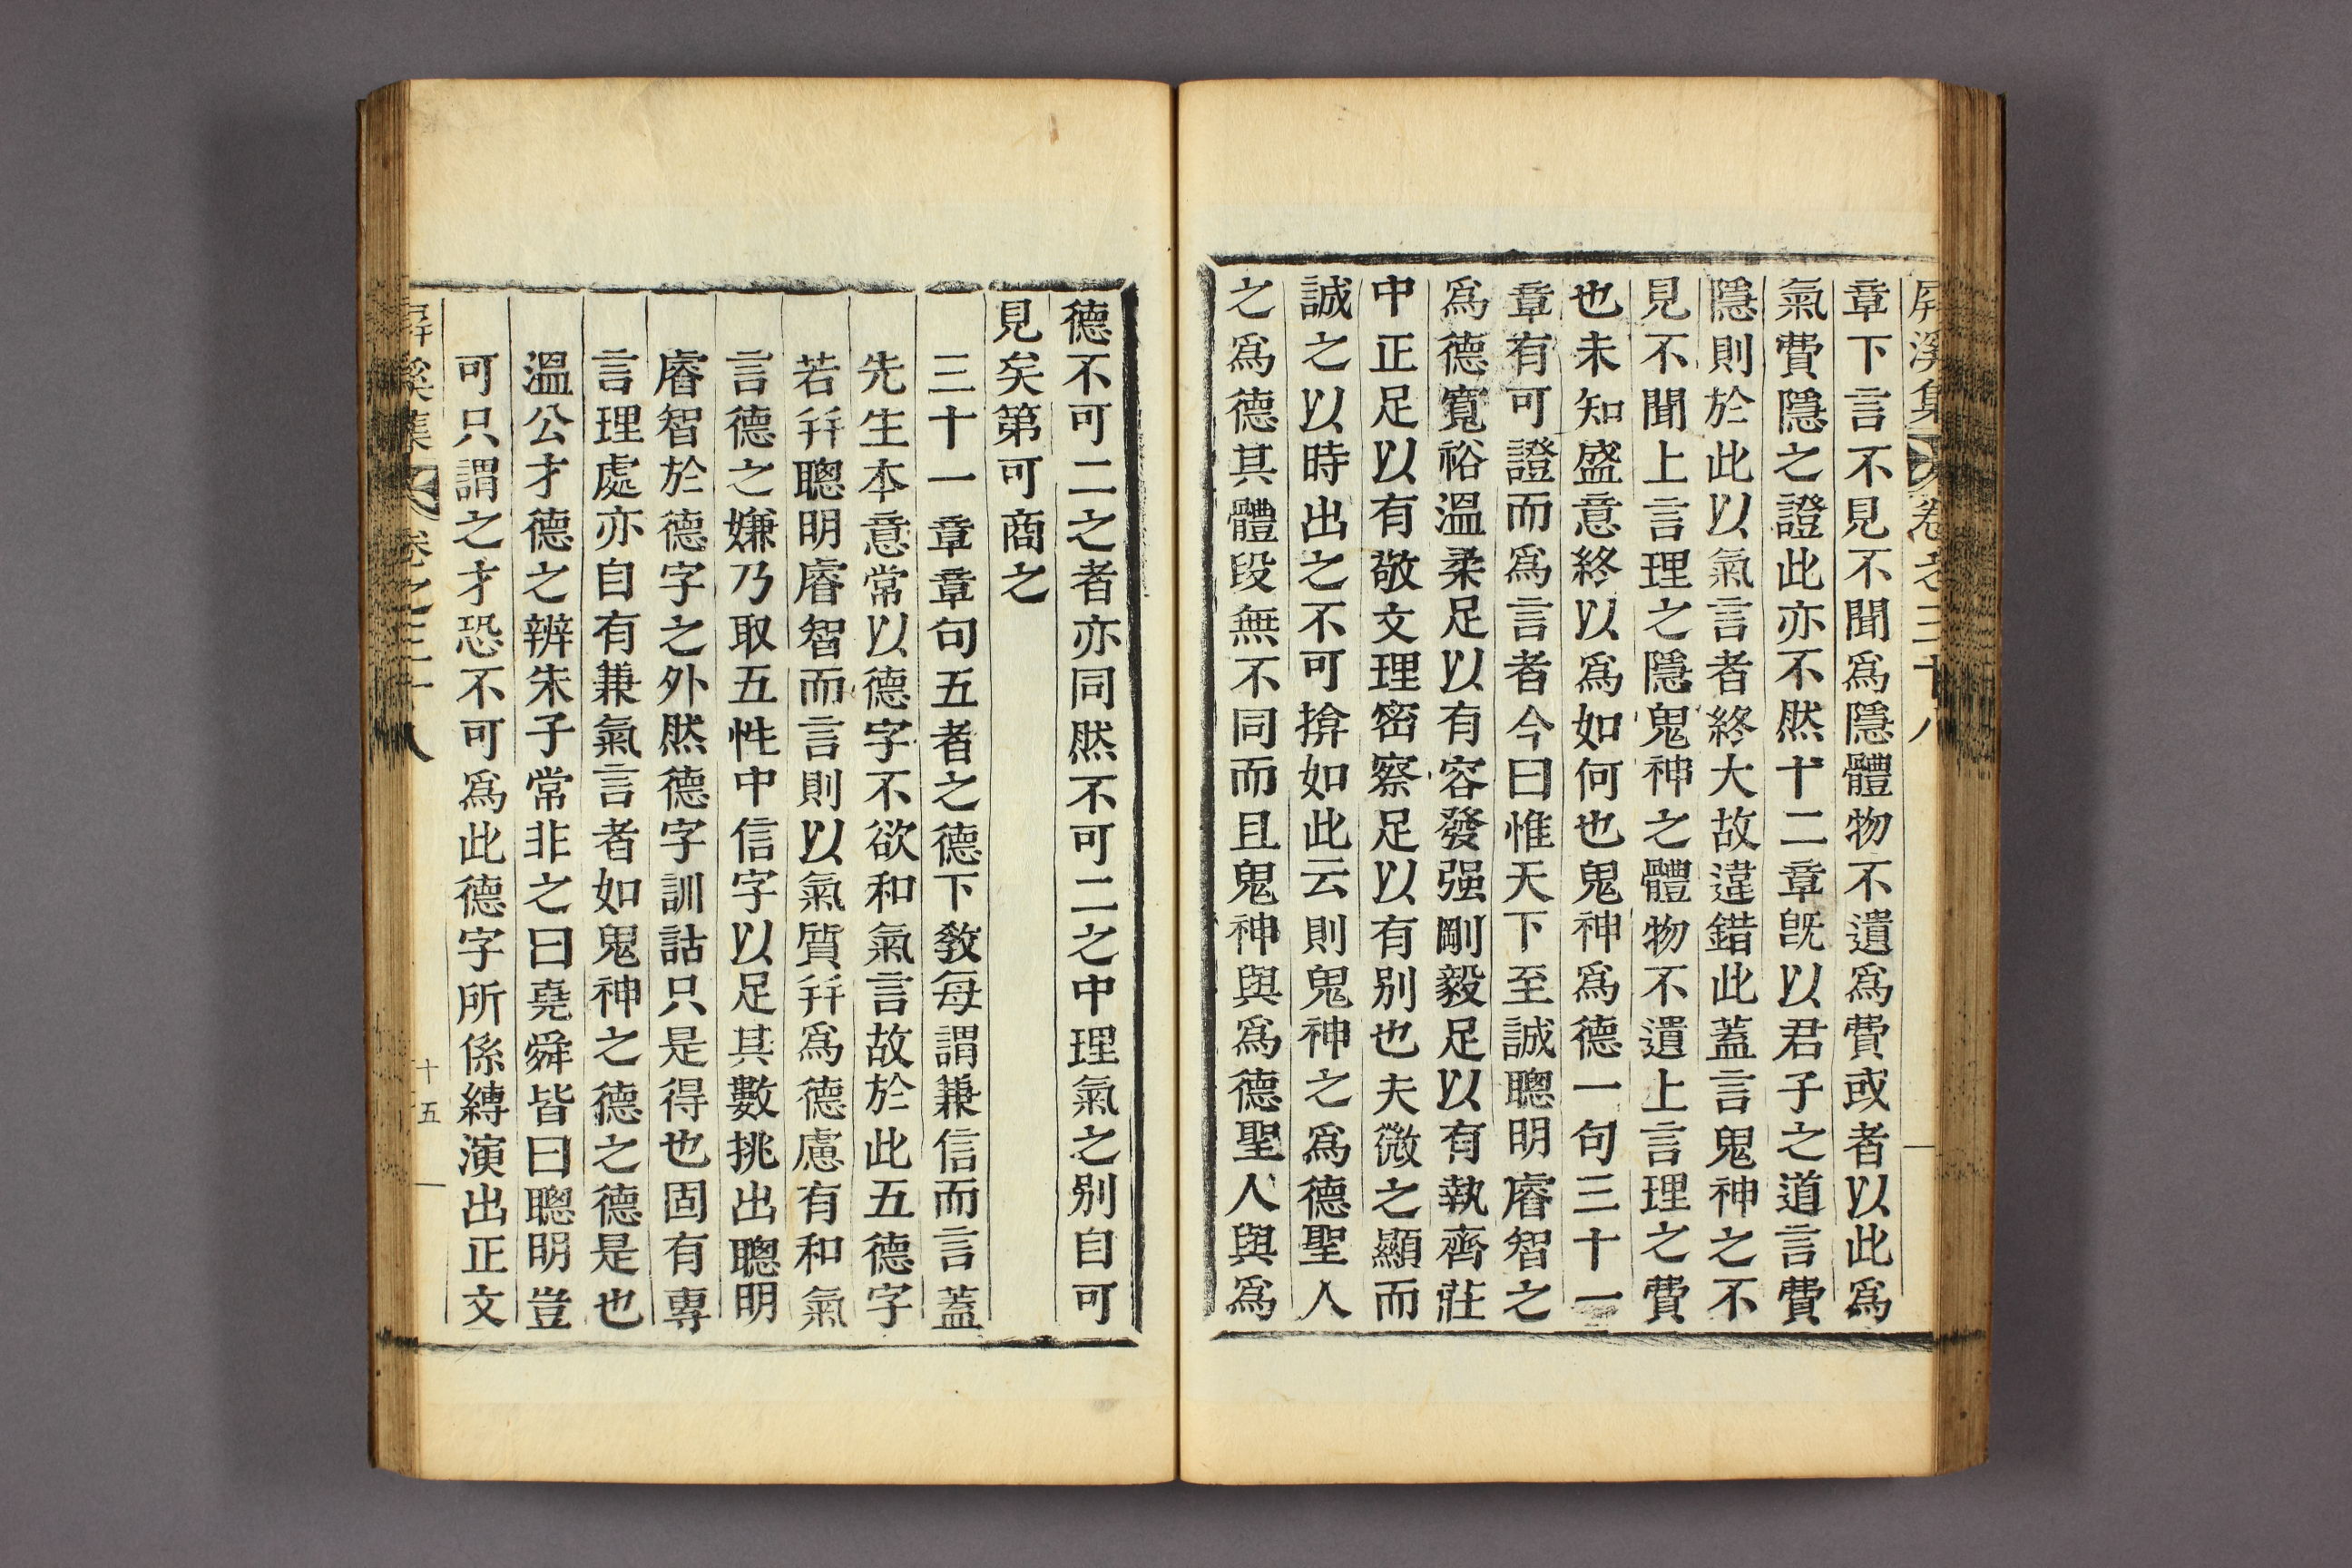 屛溪集 卷之三十八
章下言不見不聞爲隱體物不遺爲費或者以此爲
氣費隱之證此亦不然十二章旣以君子之道言費
隱則於此以氣言者終大故違錯此蓋言鬼神之不
見不聞上言理之隱鬼神之體物不遺上言理之費
也未知盛意終以爲如何也鬼神爲德一句三十一
章有可證而爲言者今曰惟天下至誠聰明睿智之
爲德寬裕溫柔足以有容發强剛毅足以有執齊莊
中正足以有敬文理密察足以有别也夫微之顯而
誠之以時出之不可揜如此云則鬼神之爲德聖人
之爲德其體段無不同而且鬼神與爲德聖人與爲
德不可二之者亦同然不可二之中理氣之别自可
見矣第可商之
三十一章章句五者之德下敎每謂兼信而言蓋
先生本意常以德字不欲和氣言故於此五德字
若幷聰明睿智而言則以氣質幷爲德慮有和氣
言德之嫌乃取五性中信字以足其數挑出聰明
睿智於德字之外然德字訓詁只是得也固有專
言理處亦自有兼氣言者如鬼神之德之德是也
溫公才德之辨朱子常非之曰堯舜皆曰聰明豈
可只謂之才恐不可爲此德字所係縛演出正文
屛溪集 卷之三十八 十五